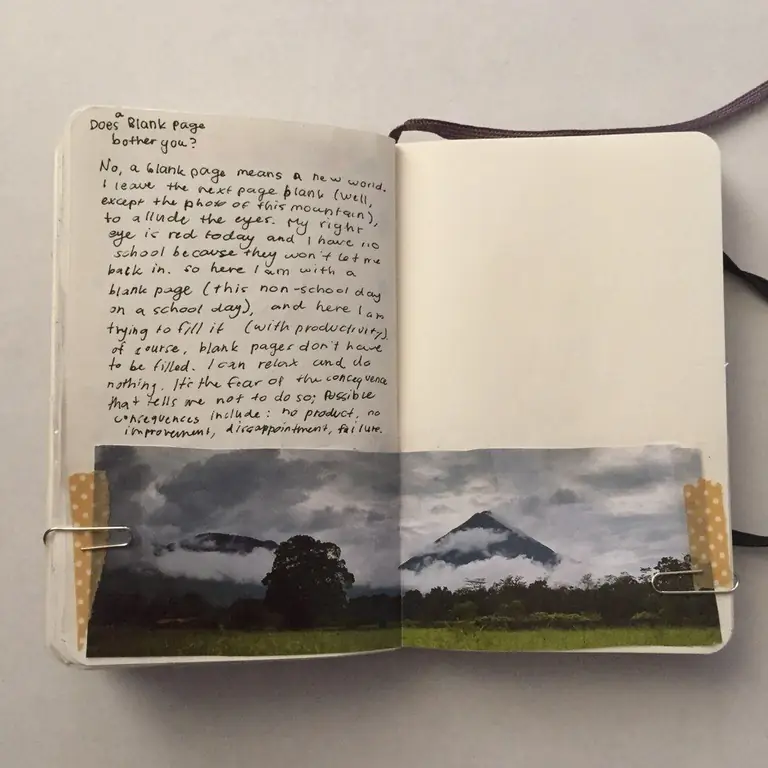 Does a Blank page
bother you?
No, a blank page means a new world.
I leave the next page blank (well,
except the photo of this mountain),
to allude the eyes. My right
eye is red today and I have no
school because they won't let me
back in. so here I am with a
blank page (this non-school day
on a school day), and here I am
trying to fill it (with productivity).
of course, blank pages don't have
to be filled. I can relax and do
nothing. It's the fear of the concequence
that tells me not to do so; Possible
consequences include: no product, no
improvement, disappointment, failure.